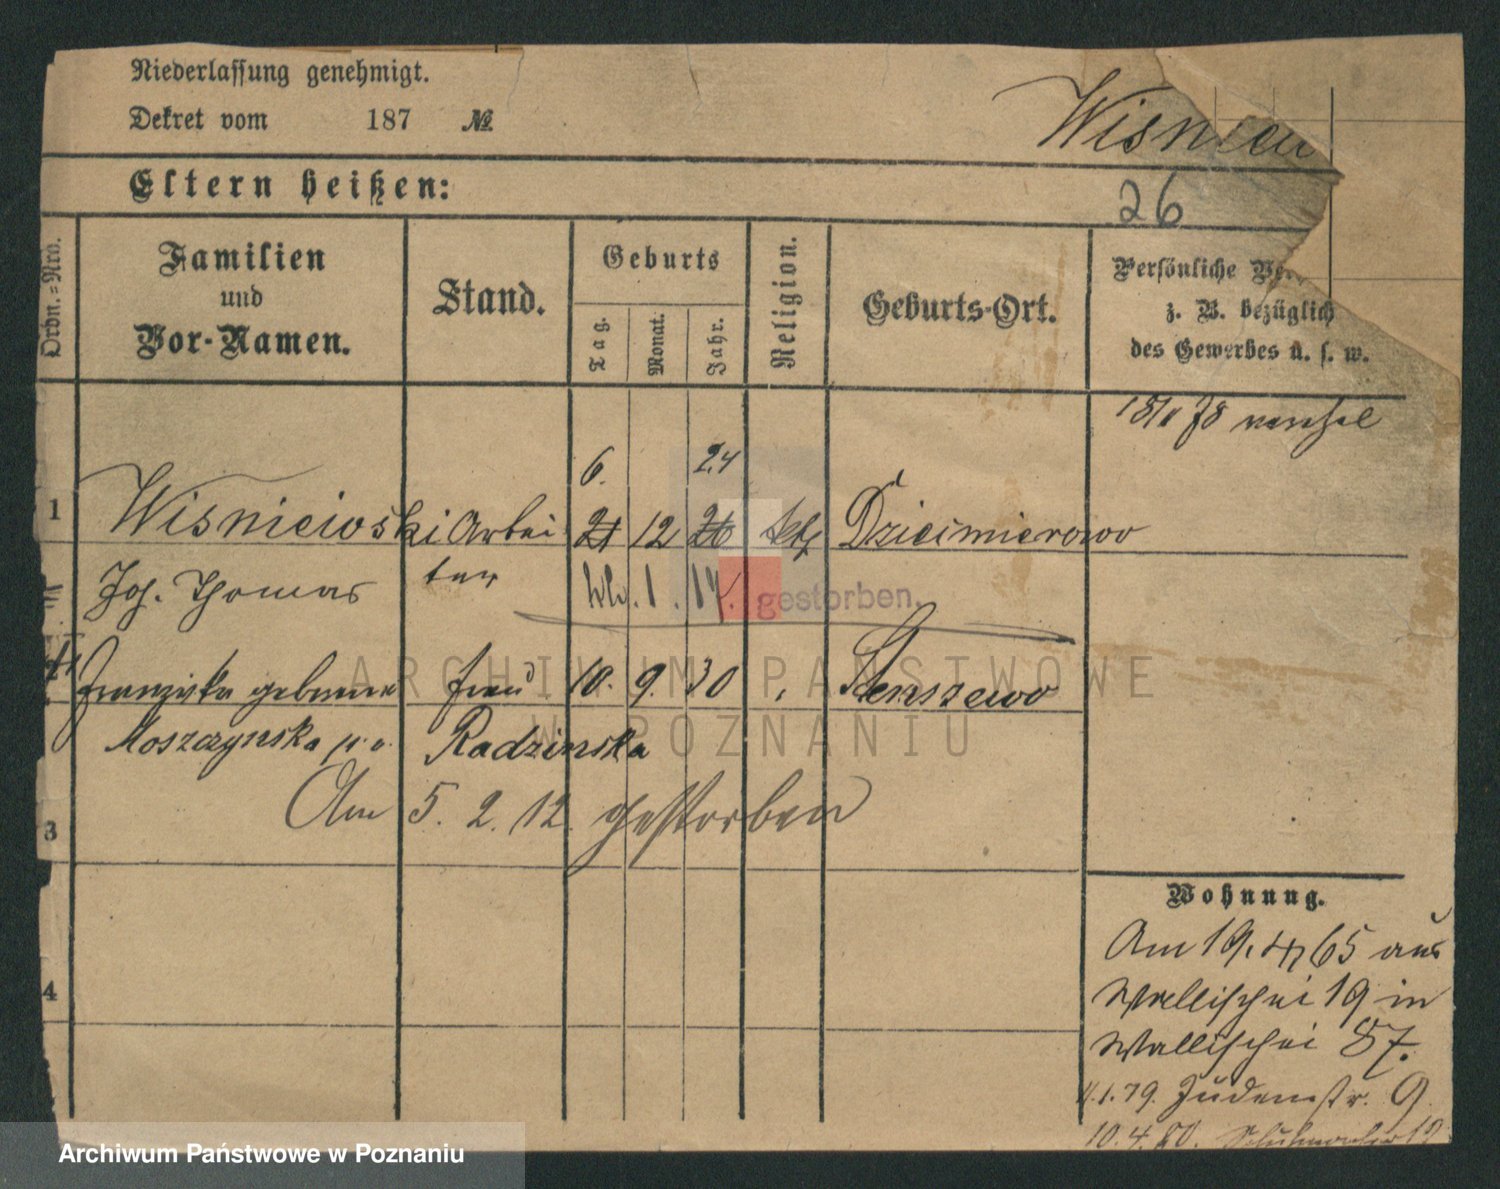 Niederlassung genehmigt.
Dekret vom 187 №
Wisniew
Eltern heißen:
26
Ordn.=Nro.
Familien
und
Vor-Namen.
Stand.
Geburts
Tag.
Monat.
Jahr.
Religion.
Geburts-Ort.
Persönliche Ver
z. B. bezüglich
des Gewerbes u. s. w.
6. 24
1 Wisniewski Arbei 21 12 26 kth Dziecmierowo
Joh. Thomas ter 1. 14. gestorben.
Franziska geborene Frau 10. 9. 30 Stenszewo
Moszczynska Radzinska
Am 5. 2. 12. gestorben
3
4
Wohnung.
Am 19. 4 65 aus
Wallischei 19 in
Wallischei 87.
1.79. Judenstr. 9
10.4.80.
ARCHIWUM PAŃSTWOWE
W POZNANIU
Archiwum Państwowe w Poznaniu